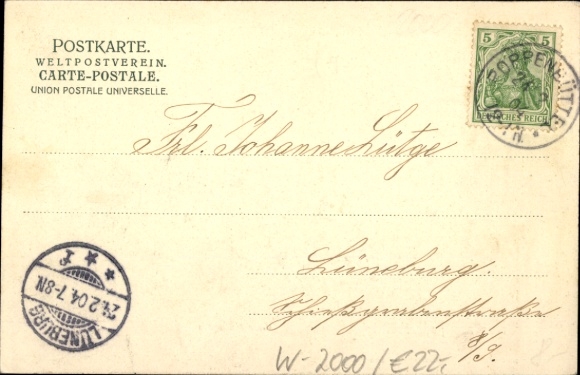 POSTKARTE.
WELTPOSTVEREIN.
CARTE-POSTALE.
UNION POSTALE UNIVERSELLE.
5 5
DEUTSCHES REICH
POPPENBÜTTEL
Frl. Johanne Lütge
Lüneburg.
Schießgrabenstraße
8/9.
LÜNEBURG
24.2.04.7-8N.
W-2000/€22,-